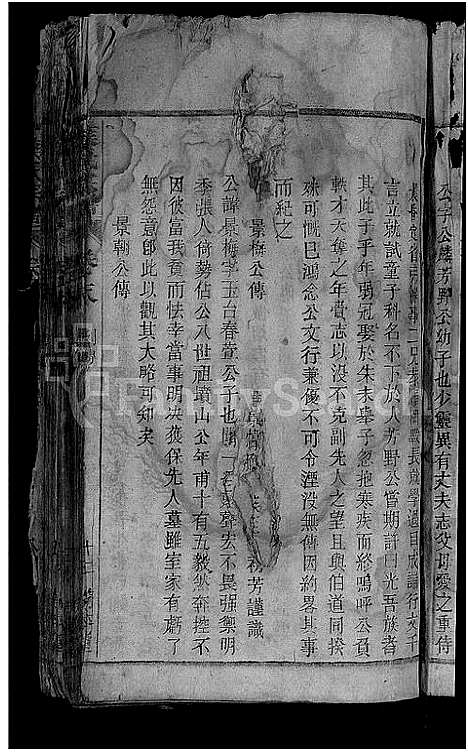 公字公麟芳野公幼子也少靈異有丈夫志父母愛之重侍
長就學過目成誦行文千
言立就試童子科名不下於人芳野公嘗期許門光吾族者
其此子乎年弱冠娶於朱未舉子忽抱寒疾而終嗚呼公負
軼才天奪之年賫志以沒不克副先人之望且與伯道同揆
殊可慨已鴻念公文行兼優不可令湮没無傳因約畧其事
而紀之
芳謹識
景梅公傳
公諱景梅字玉台春萱公子也賦一宏不畏强禦明
季張人倚勢佔公八世祖墳山公年甫十有五毅然奔控不
因彼富我貧而怯幸當事明決獲保先人墓雖室家有蔚了
無怨意卽此以觀其大略可知矣
景翰公傳
卷末
FamilySearch